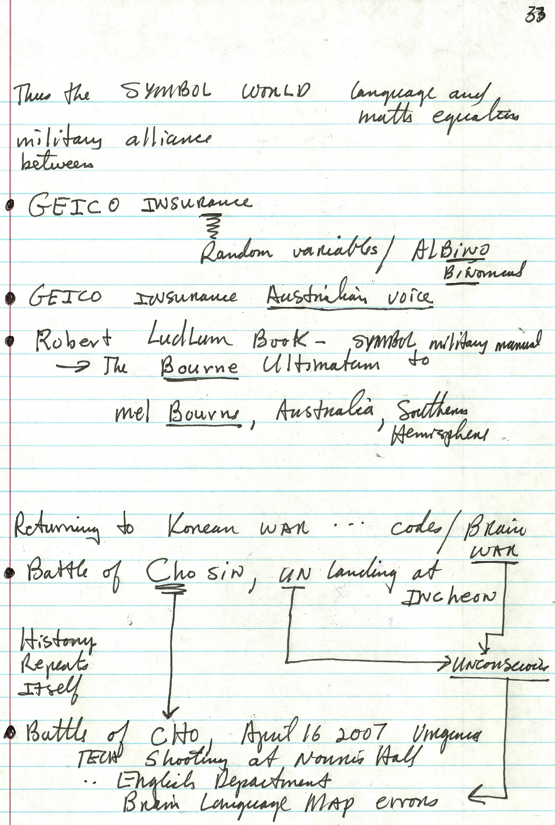 33
Thus the SYMBOL WORLD language and
maths equations
military alliance
between
• GEICO INSURANCE
Random variables / ALBINO
BiNomial
• GEICO INSURANCE Australian voice
• Robert Ludlum Book - SYMBOL military manual
→ The Bourne Ultimatum to
mel Bourne, Australia, Southern
Hemisphere
Returning to Korean WAR ... codes / Brain
WAR
• Battle of Cho sin, UN landing at
INcheon
History
Repeats
Itself
UNconscious
• Battle of CHO, April 16 2007 Virginia
TECH Shooting at Norris Hall
.. English Department
Brain Language MAP errors